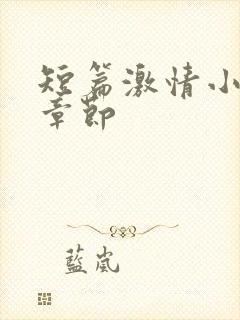 短篇激情小
章節
藍嵐